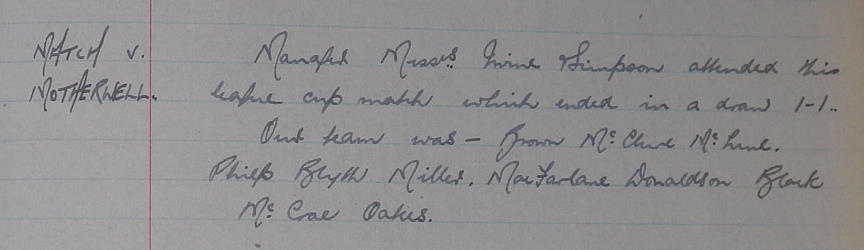 MATCH v.
MOTHERWELL.
Manager Messrs. Irvine & Simpson attended this
league cup match which ended in a draw 1-1..
Our team was - Brown Mc Clure Mc Lune.
Philip Blyth Miller. MacFarlane Donaldson Black
Mc Crae Oakes.